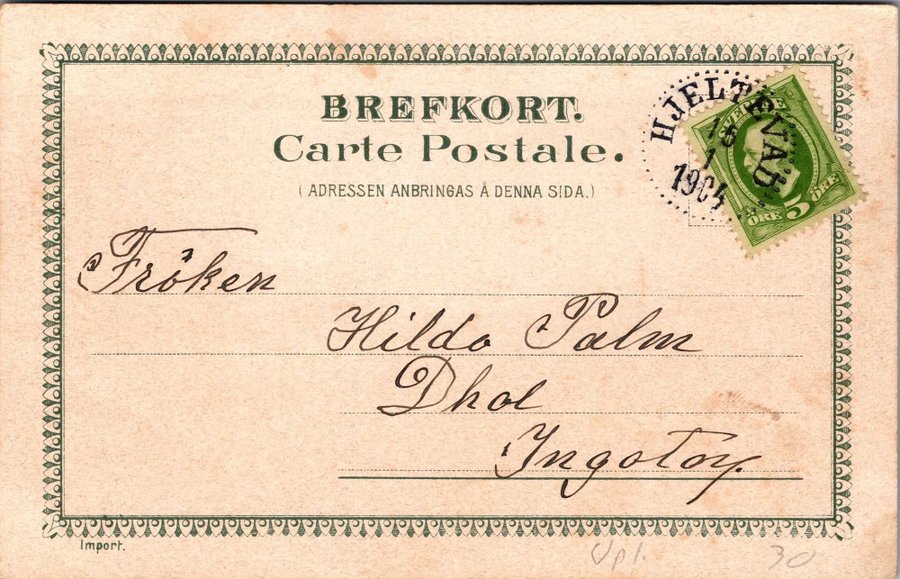 BREFKORT.
Carte Postale.
(ADRESSEN ANBRINGAS Å DENNA SIDA.)
HJELTEVAD
1
1904
SVERIGE
ÖRE 5 ÖRE
Fröken
Hilda Palm
Dhol
Ingatorp.
Import.
Upl. 30